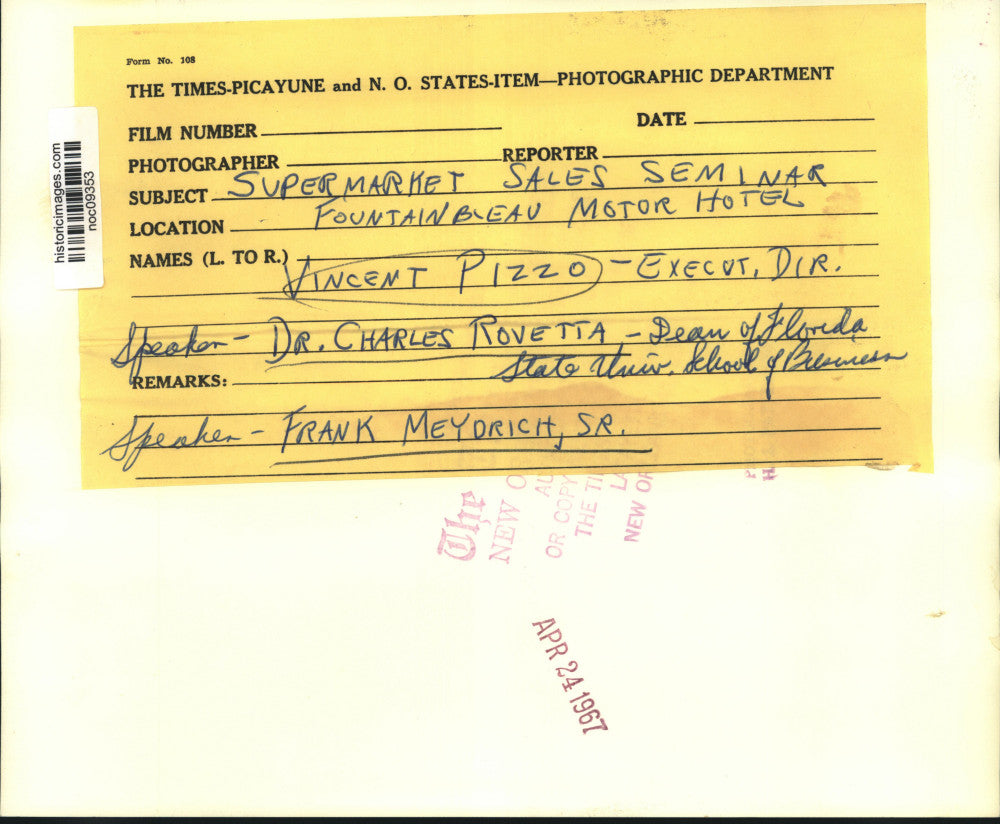 Form No. 108
THE TIMES-PICAYUNE and N. O. STATES-ITEM—PHOTOGRAPHIC DEPARTMENT
FILM NUMBER
DATE
PHOTOGRAPHER
REPORTER
SUBJECT SUPERMARKET SALES SEMINAR
LOCATION FOUNTAINBLEAU MOTOR HOTEL
NAMES (L. TO R.)
VINCENT PIZZO - EXECUT. DIR.
Speaker - DR. CHARLES ROVETTA - Dean of Florida
State Univ. School of Business
REMARKS:
Speaker - FRANK MEYDRICH, SR.
historicimages.com
noc09353
The
NEW O
AU
OR COPY
THE TI
LA
NEW OR
APR 24 1967